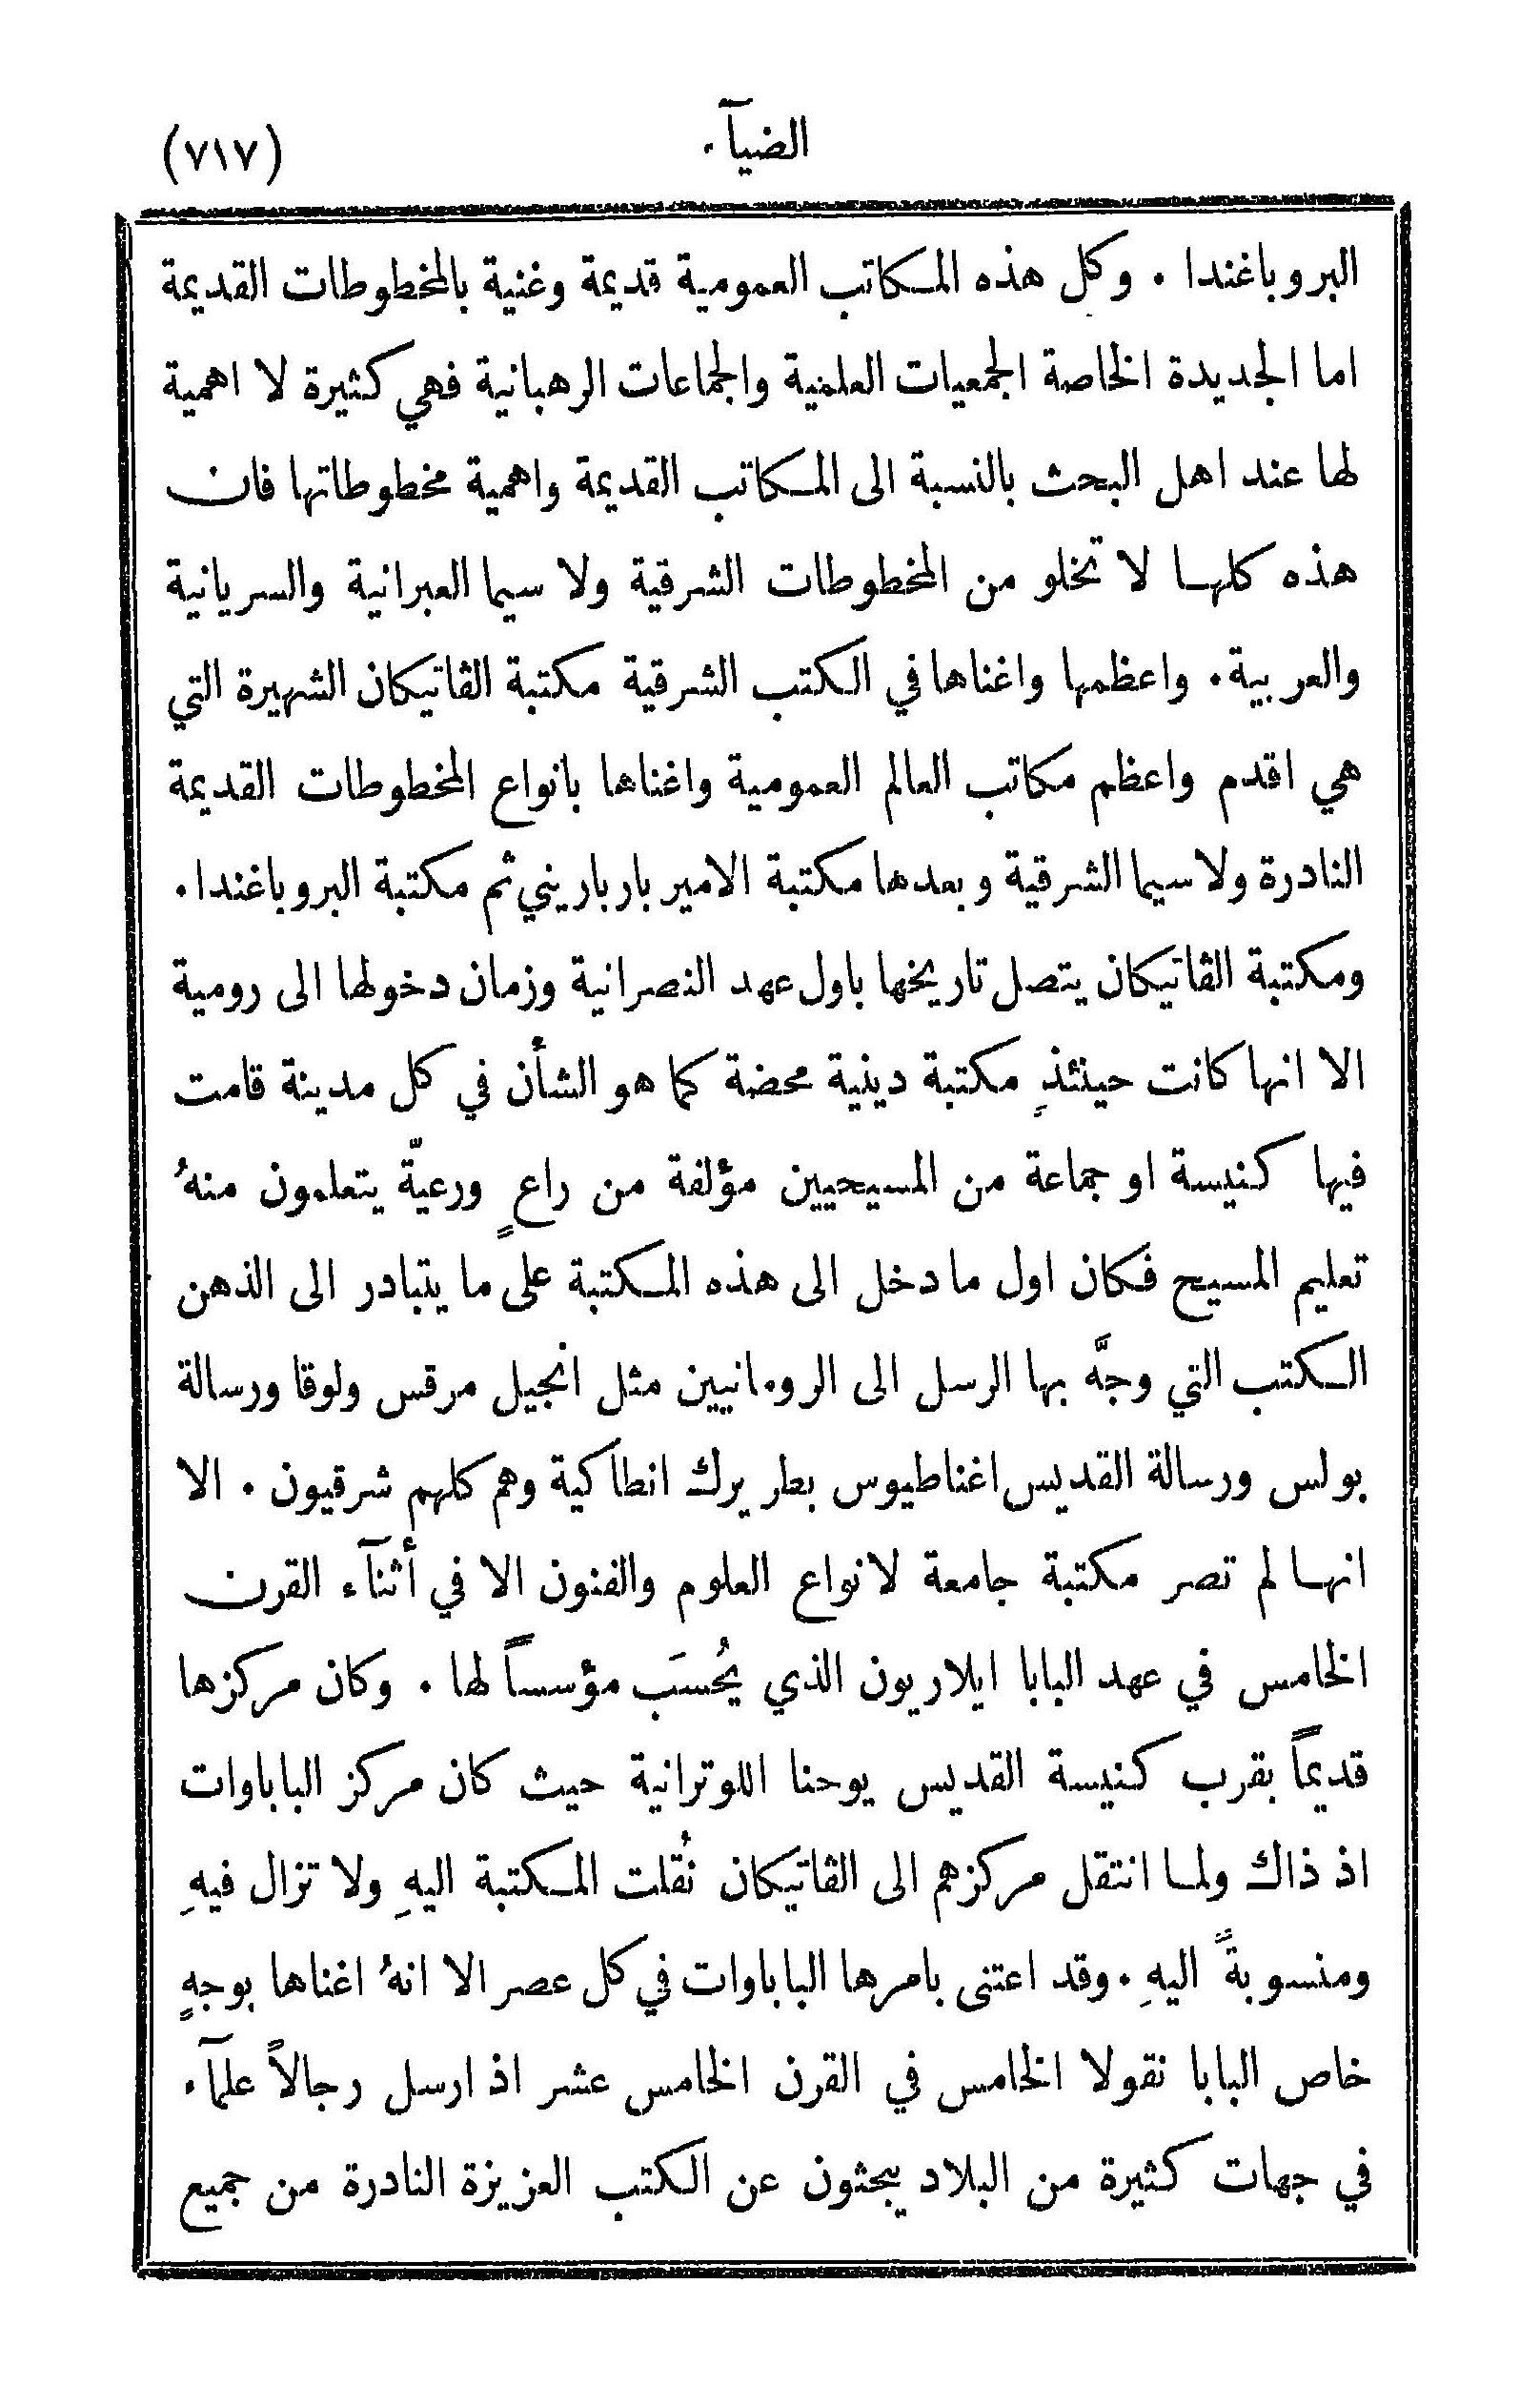 الضيآء
(٧١٧)
البروباغندا . وكل هذه المكاتب العمومية قديمة وغنية بالمخطوطات القديمة
اما الجديدة الخاصة الجمعيات العلمية والجماعات الرهبانية فهي كثيرة لا اهمية
لها عند اهل البحث بالنسبة الى المكاتب القديمة واهمية مخطوطاتها فان
هذه كلها لا تخلو من المخطوطات الشرقية ولا سيما العبرانية والسريانية
والعربية . واعظمها واغناها في الكتب الشرقية مكتبة الڤاتيكان الشهيرة التي
هي اقدم واعظم مكاتب العالم العمومية واغناها بانواع المخطوطات القديمة
النادرة ولا سيما الشرقية وبعدها مكتبة الامير بارباريني ثم مكتبة البروباغندا .
ومكتبة الڤاتيكان يتصل تاريخها باول عهد النصرانية وزمان دخولها الى رومية
الا انها كانت حينئذٍ مكتبة دينية محضة كما هو الشأن في كل مدينة قامت
فيها كنيسة او جماعة من المسيحيين مؤلفة من راعٍ ورعيّة يتعلمون منهُ
تعليم المسيح فكان اول ما دخل الى هذه المكتبة على ما يتبادر الى الذهن
الكتب التي وجَّه بها الرسل الى الرومانيين مثل انجيل مرقس ولوقا ورسالة
بولس ورسالة القديس اغناطيوس بطريرك انطاكية وهم كلهم شرقيون . الا
انها لم تصر مكتبة جامعة لانواع العلوم والفنون الا في أثنآء القرن
الخامس في عهد البابا ايلاريون الذي يُحسَب مؤسساً لها . وكان مركزها
قديماً بقرب كنيسة القديس يوحنا اللوترانية حيث كان مركز الباباوات
اذ ذاك ولما انتقل مركزهم الى الڤاتيكان نُقلت المكتبة اليهِ ولا تزال فيهِ
ومنسوبةً اليهِ . وقد اعتنى بامرها الباباوات في كل عصر الا انهُ اغناها بوجهٍ
خاص البابا نقولا الخامس في القرن الخامس عشر اذ ارسل رجالاً علمآء
في جهات كثيرة من البلاد يبحثون عن الكتب العزيزة النادرة من جميع